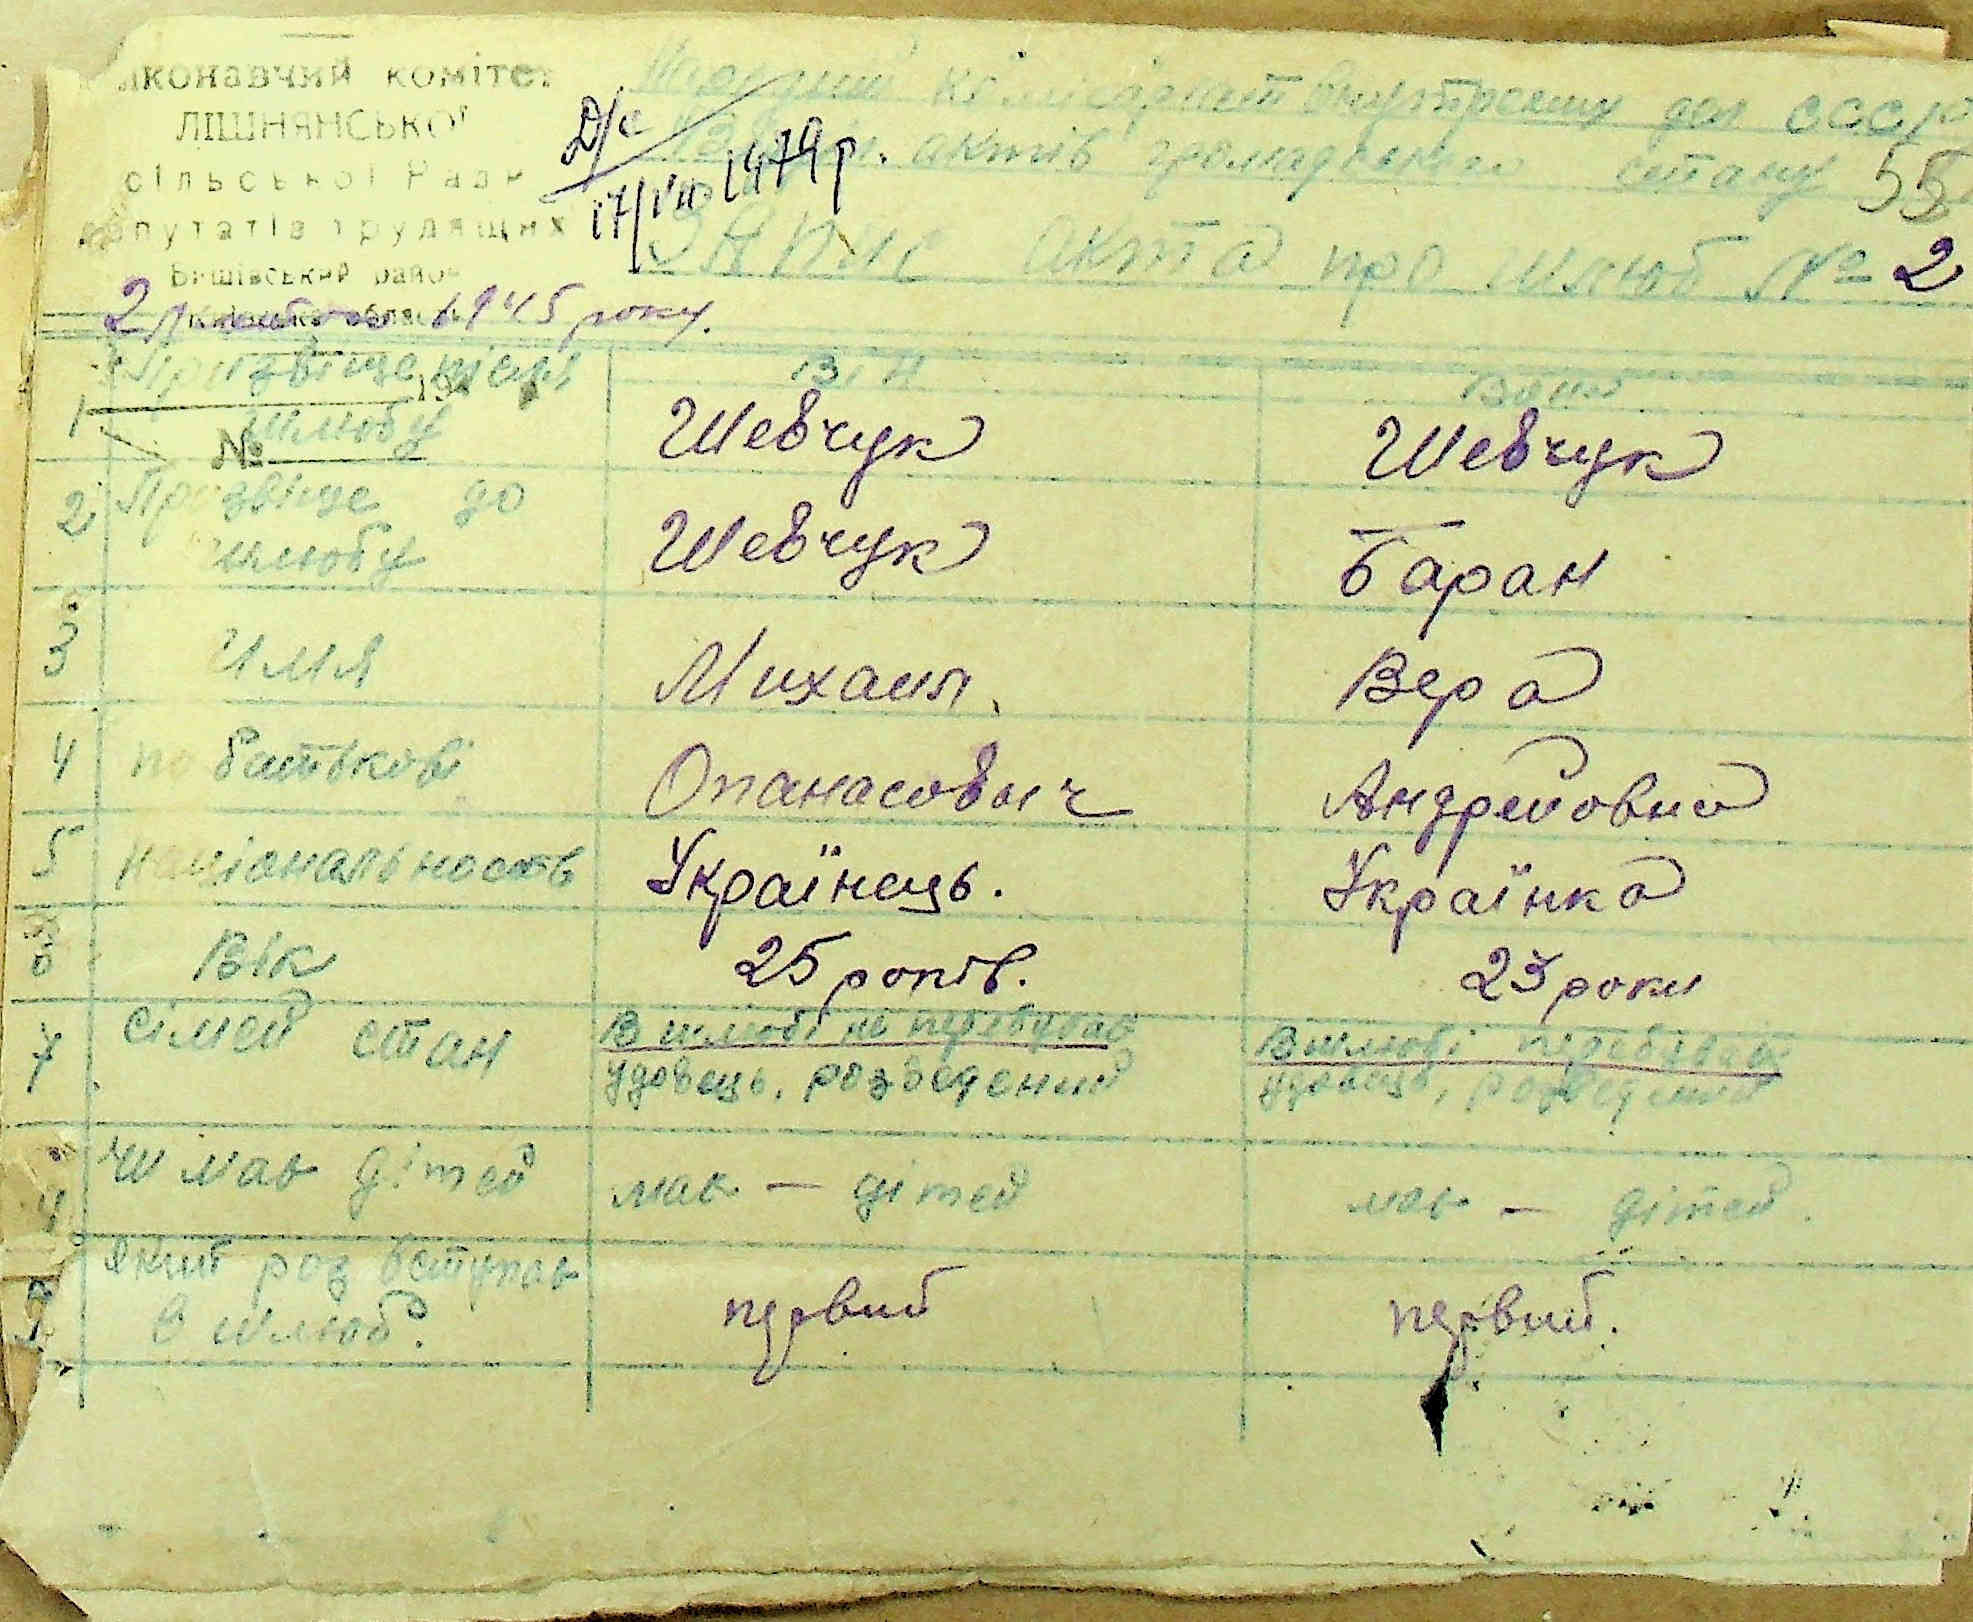 Виконавчий комітет
ЛІШНЯНСЬКОЇ
сільської Ради
депутатів трудящих
район
Д/с
17/VII 1979 р.
комісаріат внутрешних дел СССР
актів громадського стану 55
Запис акта про шлюб № 2
1945 року.
Він Вона
1 Прізвище після шлюбу Шевчук Шевчук
№
2 Прізвище до шлюбу Шевчук Баран
3 Имя Михаил. Вера
4 по батькові Опанасович Андрейовна
5 національность Українець. Українка
Вік 25 років. 23 роки
7 сімей стан В шлюбі не перебував В шлюбі перебував
удовець, розведений удовець, розведений
чи мав дітей мав — дітей мав — дітей.
Який раз вступав
в шлюб. первий первий.